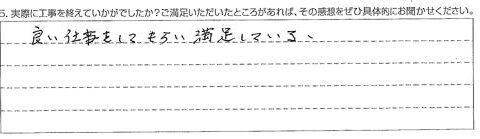 5. 実際に工事を終えていかがでしたか？ご満足いただいたところがあれば、その感想をぜひ具体的にお聞かせください。
良い仕事をしてもらい満足している、